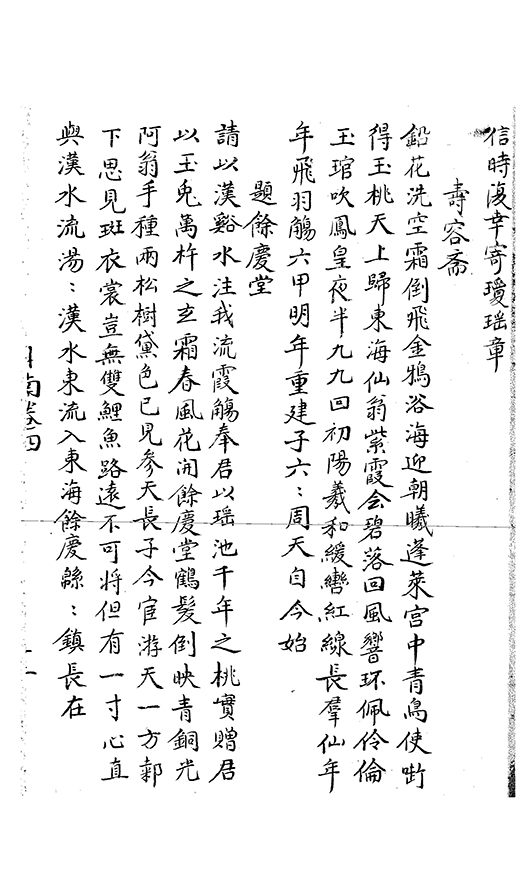 信時復幸寄瓊瑶章
壽容斋
鉛花洗空霜倒飛金鴉浴海迎朝曦蓬萊宫中青鳥使㫁
得玉桃天上歸東海仙翁紫霞会碧落回風響环佩伶倫
玉琯吹鳳皇夜半九九回初陽羲和緩轡紅線長羣仙年
年飛羽觴六甲明年重建子六：周天自今始
題餘慶堂
請以漢谿水注我流霞觴奉君以瑶池千年之桃實贈君
以玉兎萬杵之玄霜春風花開餘慶堂鶴髮倒映青銅光
阿翁手種兩松樹黛色已見参天長子今宦游天一方鄣
下思見斑衣裳豈無雙鯉魚路遠不可將但有一寸心直
與漢水流湯：漢水東流入東海餘慶緜：鎮長在